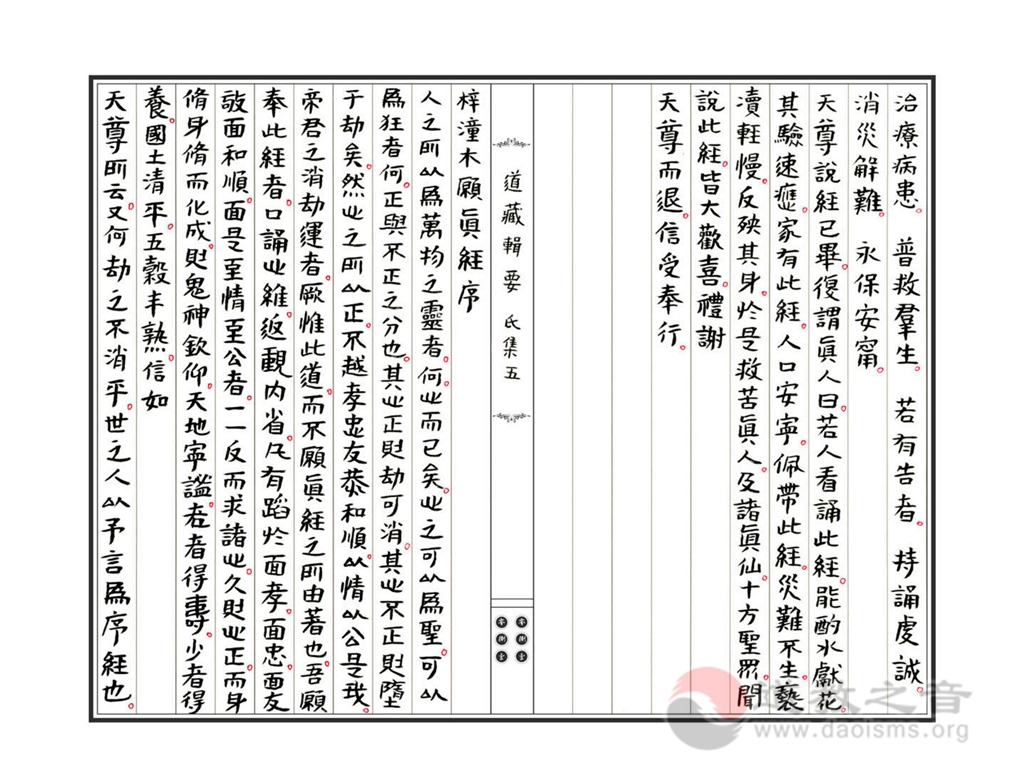 治療病患。普救羣生。若有告者。持誦虔誠。
消災解難。永保安甯。
天尊說經已畢。復謂眞人曰。若人看誦此經。能酌水獻花。
其驗速應。家有此經。人口安寧。佩帶此經。災難不生。褻
瀆輕慢。反殃其身。於是救苦眞人。及諸眞仙。十方聖眾。聞
說此經。皆大歡喜。禮謝
天尊而退。信受奉行。
道藏輯要 氐集五
梓潼本願眞經序
人之所以爲萬物之靈者。何心而已矣。心之可以爲聖。可以
爲狂者何。正與不正之分也。其心正則劫可消。其心不正則墮
于劫矣。然心之所以正。不越孝忠友恭和順。以情以公是我。
帝君之消劫運者。厥惟此道。而本願眞經之所由著也。吾願
奉此經者。口誦心維。返觀內省。凡有蹈於面孝。面忠。面友
敬面和順。面是至情至公者。一一反而求諸心。久則心正。而身
脩身脩而化成。則鬼神欽仰。天地寧謐。老者得壽。少者得
養。國土清平。五穀丰熟。信如
天尊所云。又何劫之不消乎。世之人以予言爲序經也。
道教之音
www.daoisms.org